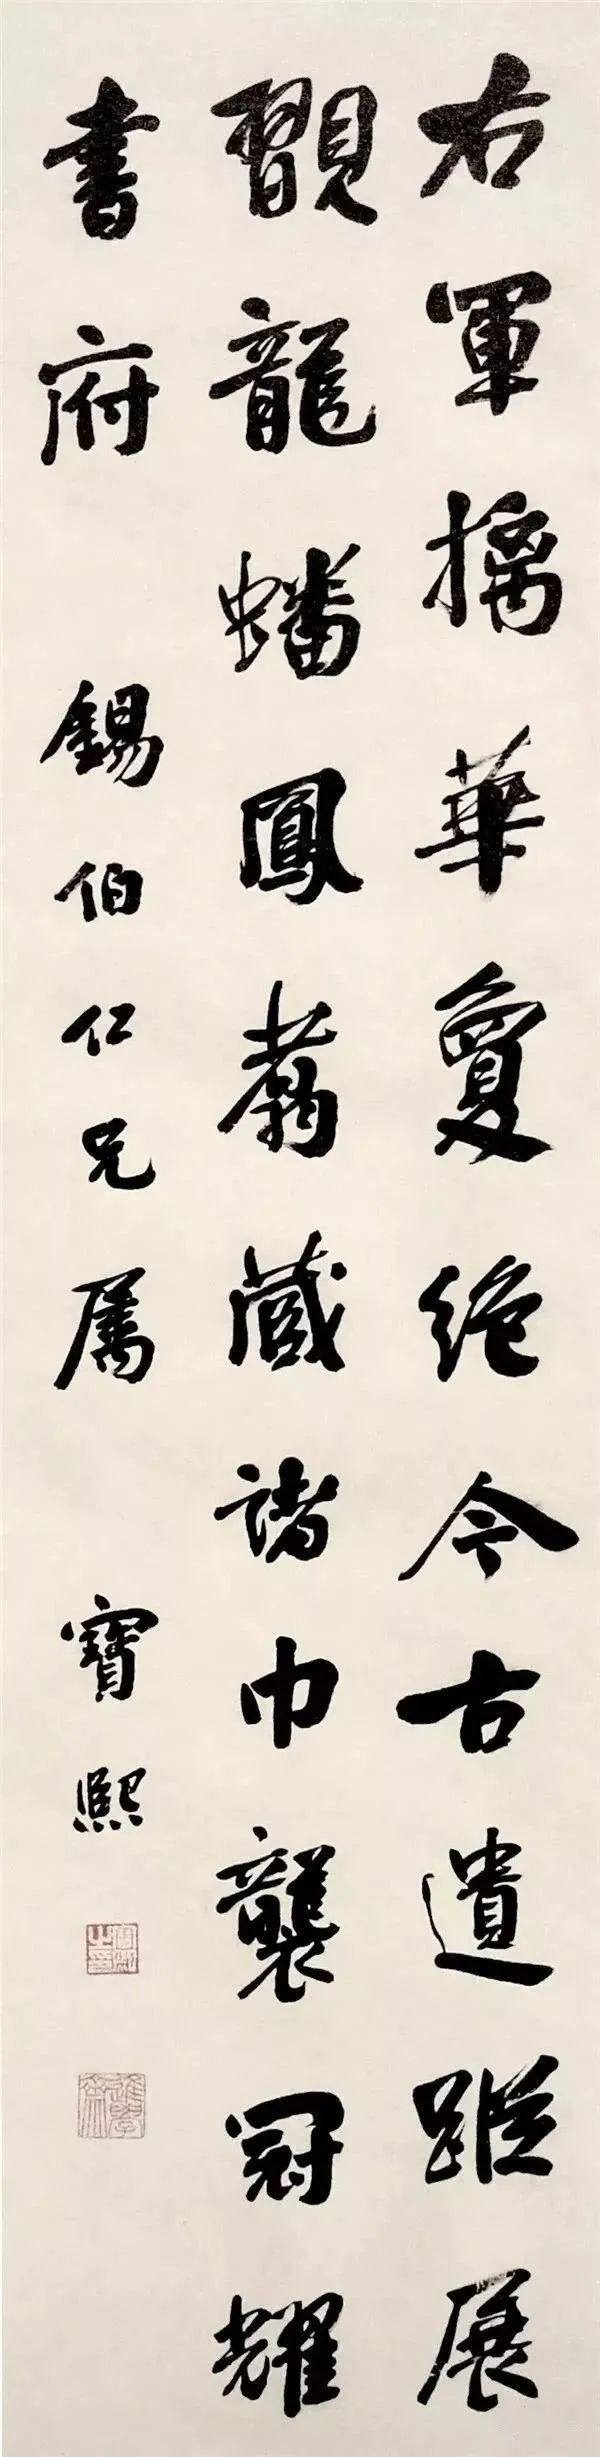 右軍摛華夐絕今古遺蹤展
翫龍蟠鳳翥藏諸巾襲冠耀
書府
錫伯仁兄屬
寶熙